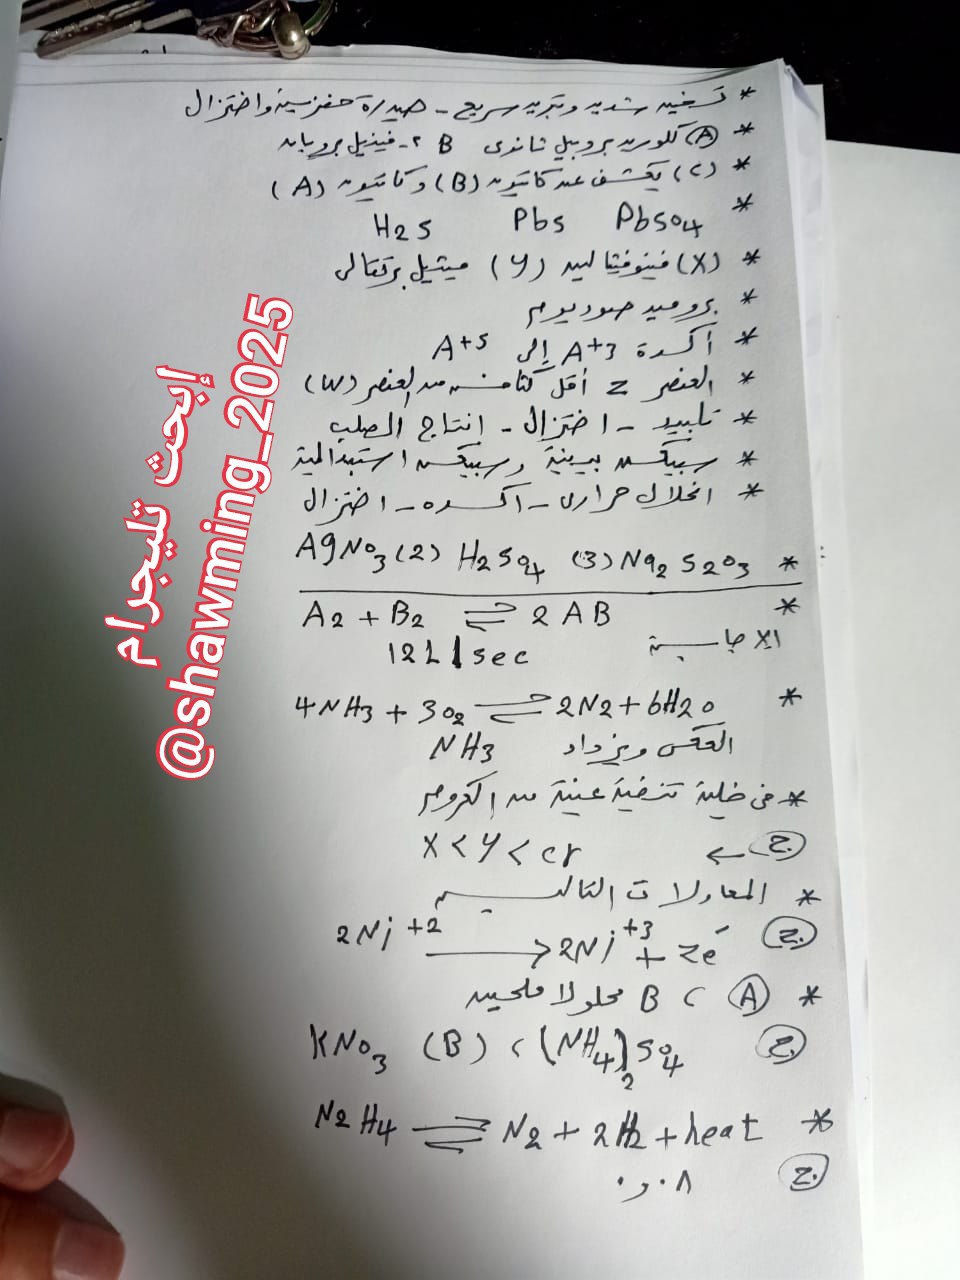 * تسخين شديد وتبريد سريع - هيدرة حفزية واختزال
* (A) كلوريد بروبيل ثانوى B ٢- فينيل بروبان
* (C) يكشف عن كاتيون (B) وكاتيون (A)
* H2S PbS PbSO4
* (X) فينولفيثالين (Y) ميثيل برتقالى
* بروميد صوديوم
* أكسدة A+3 إلى A+5
* العنصر Z أقل كثافة من العنصر (W)
* تلبيد - اختزال - انتاج الصلب
* سبيكة بينية وسبيكة استبدالية
* انحلال حرارى - اكسده - اختزال
* AgNO3 (2) H2SO4 (3) Na2S2O3
* A2 + B2 ⇌ 2AB
الاجابة 12L/sec
* 4NH3 + 3O2 ⇌ 2N2 + 6H2O
العكسى ويزداد NH3
* فى خلية تنقية عينة من الكروم
ج ← X < Y < Cr
* المعادلات التاليه
ج 2Ni+2 → 2Ni+3 + 2e-
* (A) ، B محلولا ملحين
ج KNO3 (B) ، (NH4)2SO4
* N2H4 ⇌ N2 + 2H2 + heat
ج ٠,٠٨
إبحث تليجرام
@shawming_2025